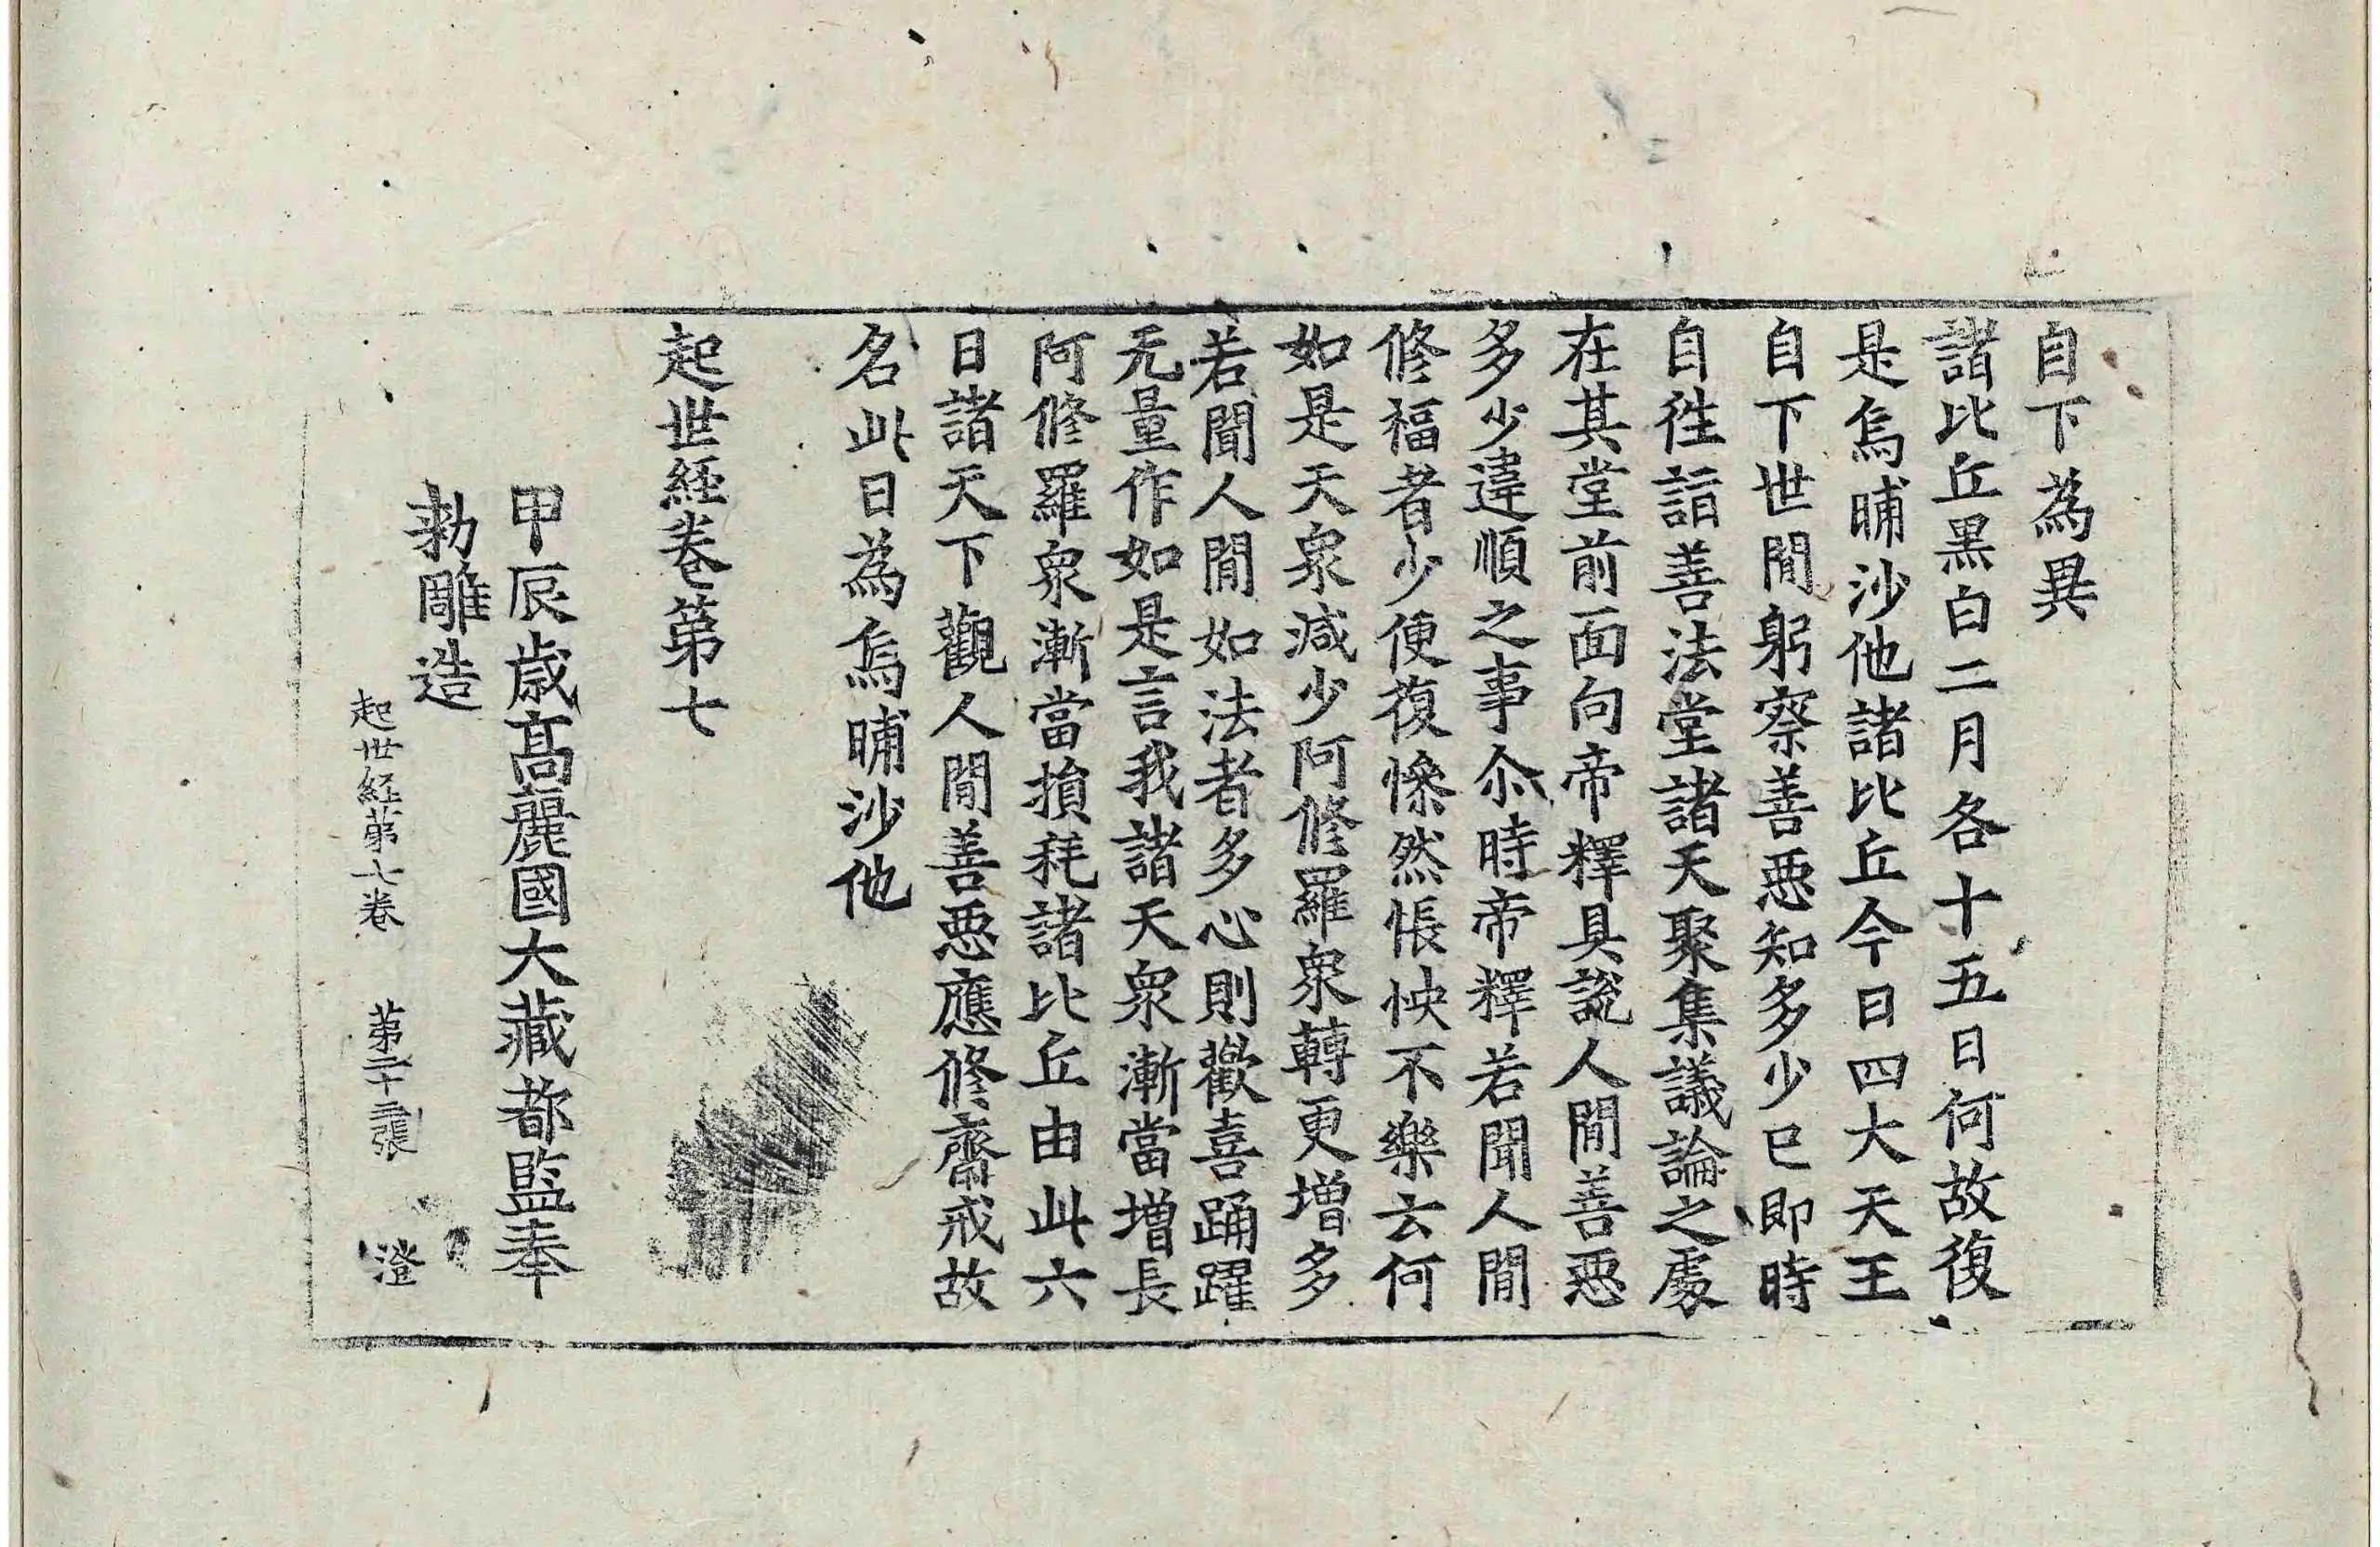 自下為異
諸比丘黑白二月各十五日何故復
是烏晡沙他諸比丘今日四大天王
自下世閒躬察善惡知多少已即時
自徃詣善法堂諸天聚集議論之處
在其堂前面向帝釋具說人閒善惡
多少違順之事尒時帝釋若聞人閒
修福者少便復慘然悵怏不樂云何
如是天衆減少阿修羅衆轉更增多
若聞人閒如法者多心則歡喜踊躍
无量作如是言我諸天衆漸當增長
阿修羅衆漸當損耗諸比丘由此六
日諸天下觀人閒善惡應修齋戒故
名此日為烏晡沙他
起世経卷第七
甲辰歲高麗國大藏都監奉
勑雕造
起世経第七卷 第二十二張 澄